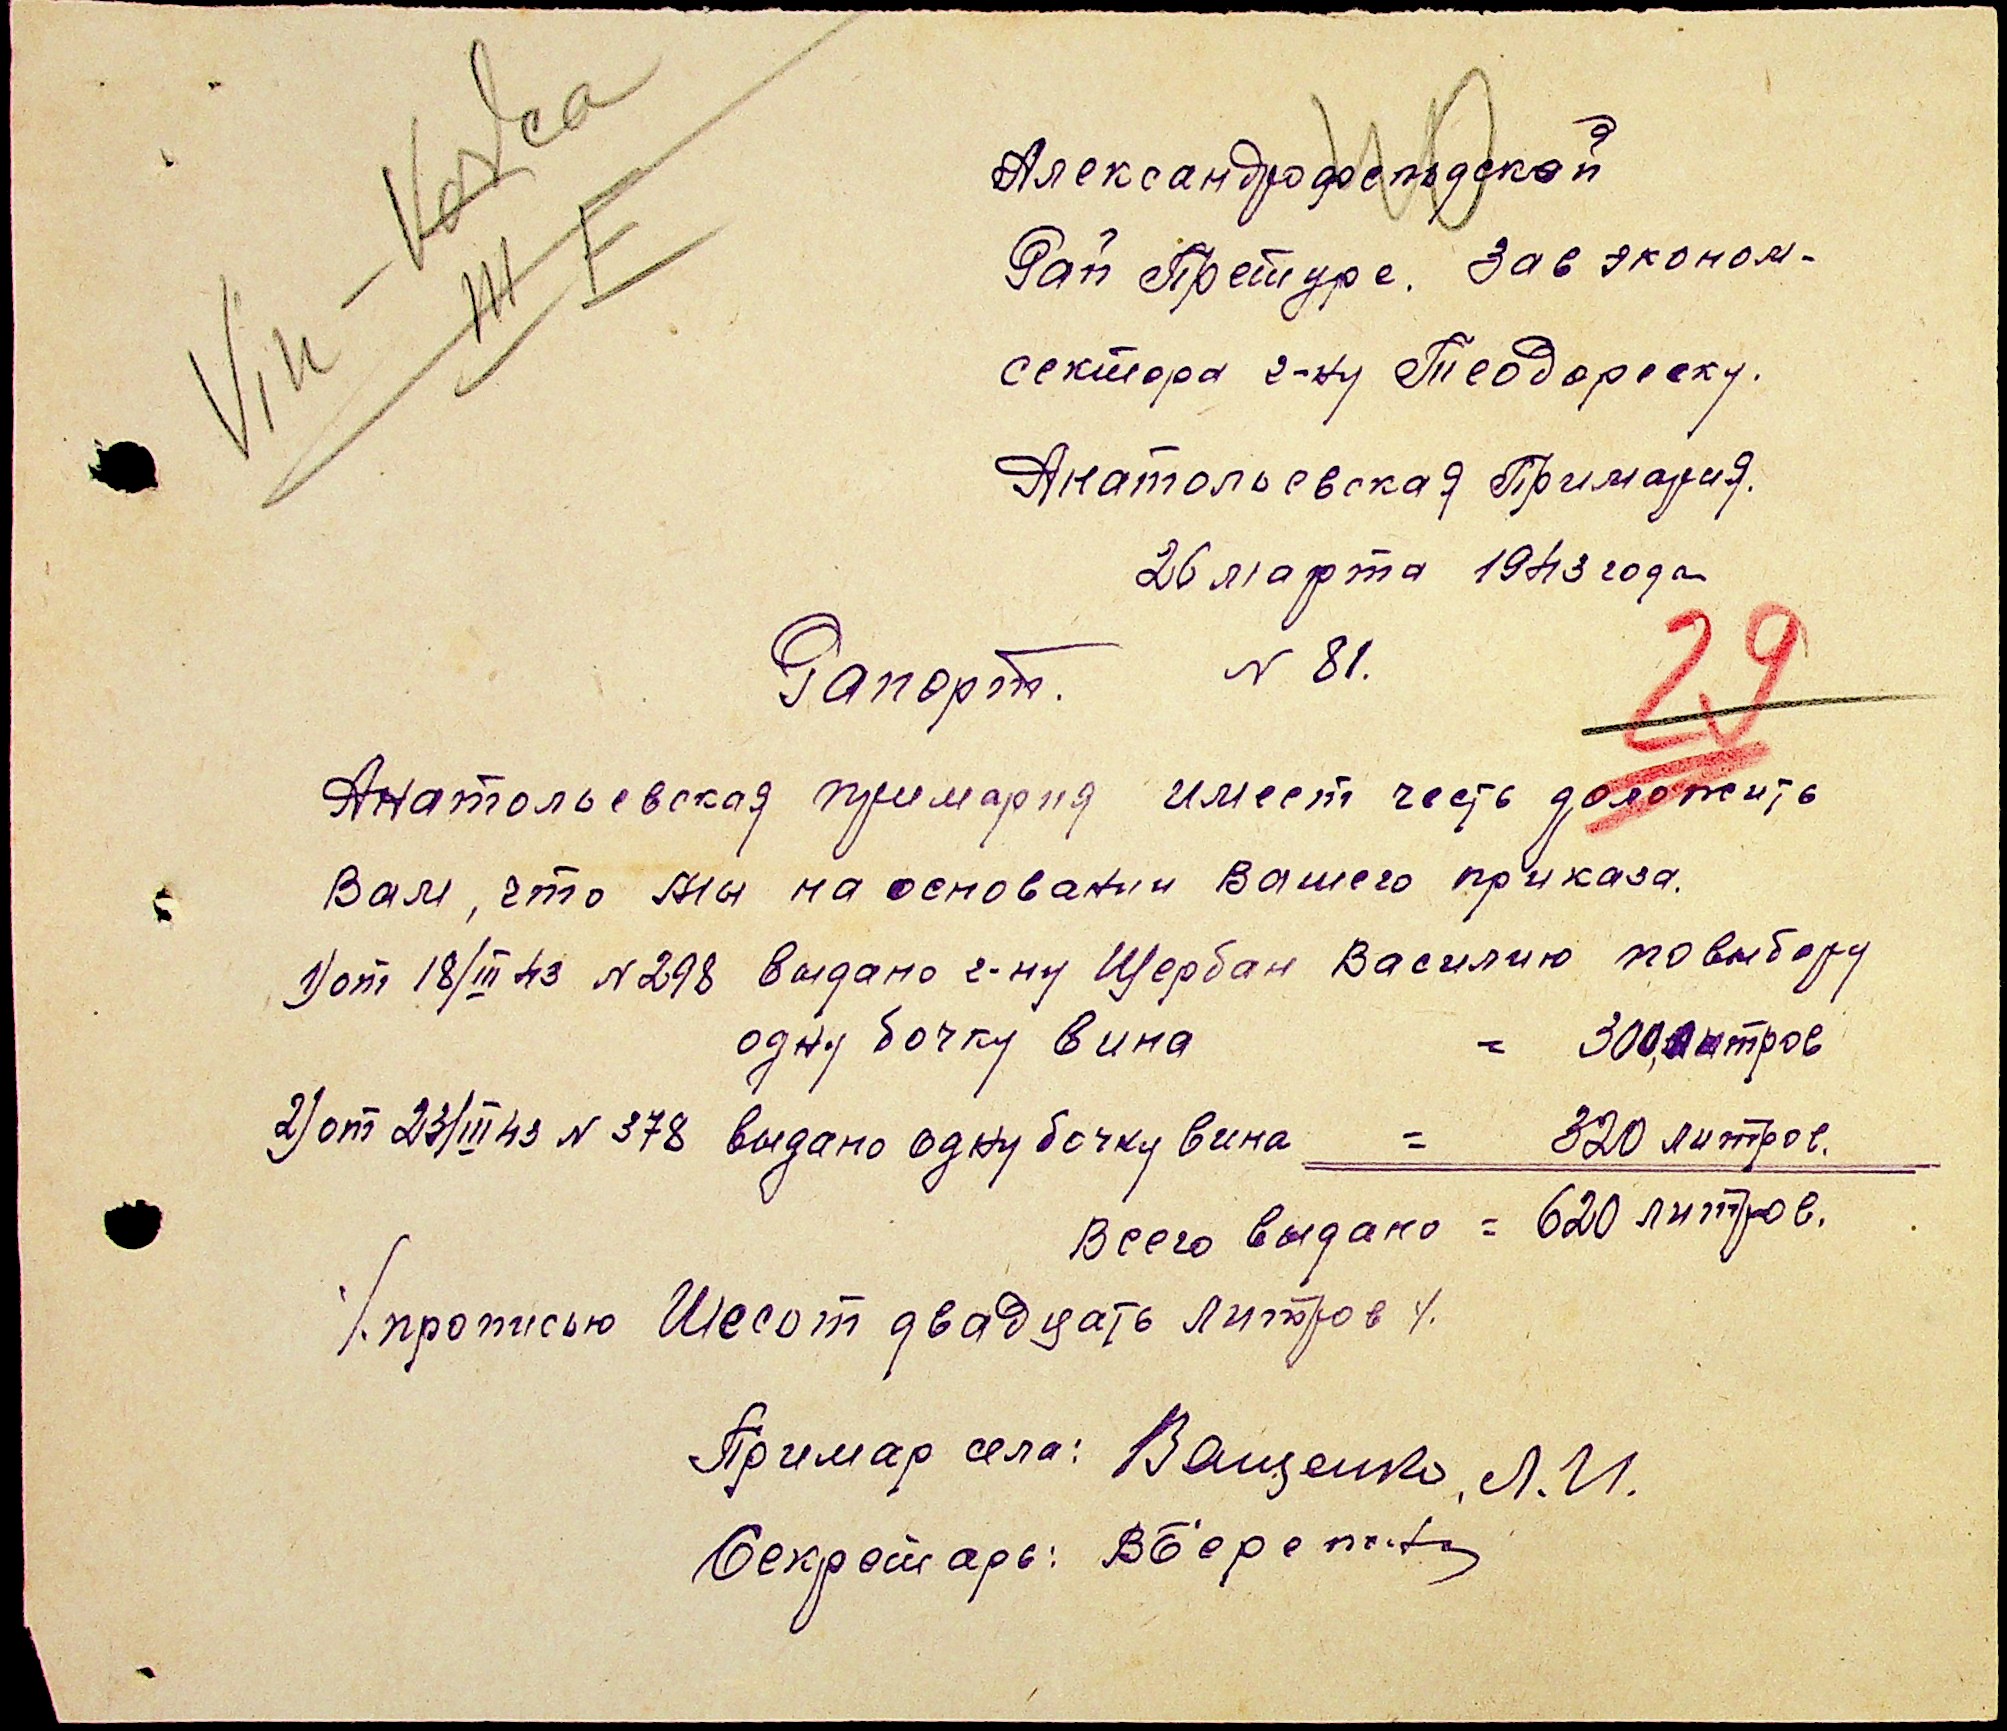 Vin – Vodca
III E
Александрофельдской
Рай Претуре. Зав эконом-
сектора г-ну Теодореску.
Анатольевская Примария.
26 марта 1943 года
Рапорт. N 81.
29
Анатольевская примария имеет честь доложить
Вам, что мы на основании Вашего приказа.
1) от 18/III 43 N 298 выдано г-ну Щербан Василию по выбору
одну бочку вина = 300 литров
2) от 23/III 43 N 378 выдано одну бочку вина = 320 литров.
Всего выдано = 620 литров.
/. прописью Шесот двадцать литров /.
Примар села: Ващенко, Л.И.
Секретарь: